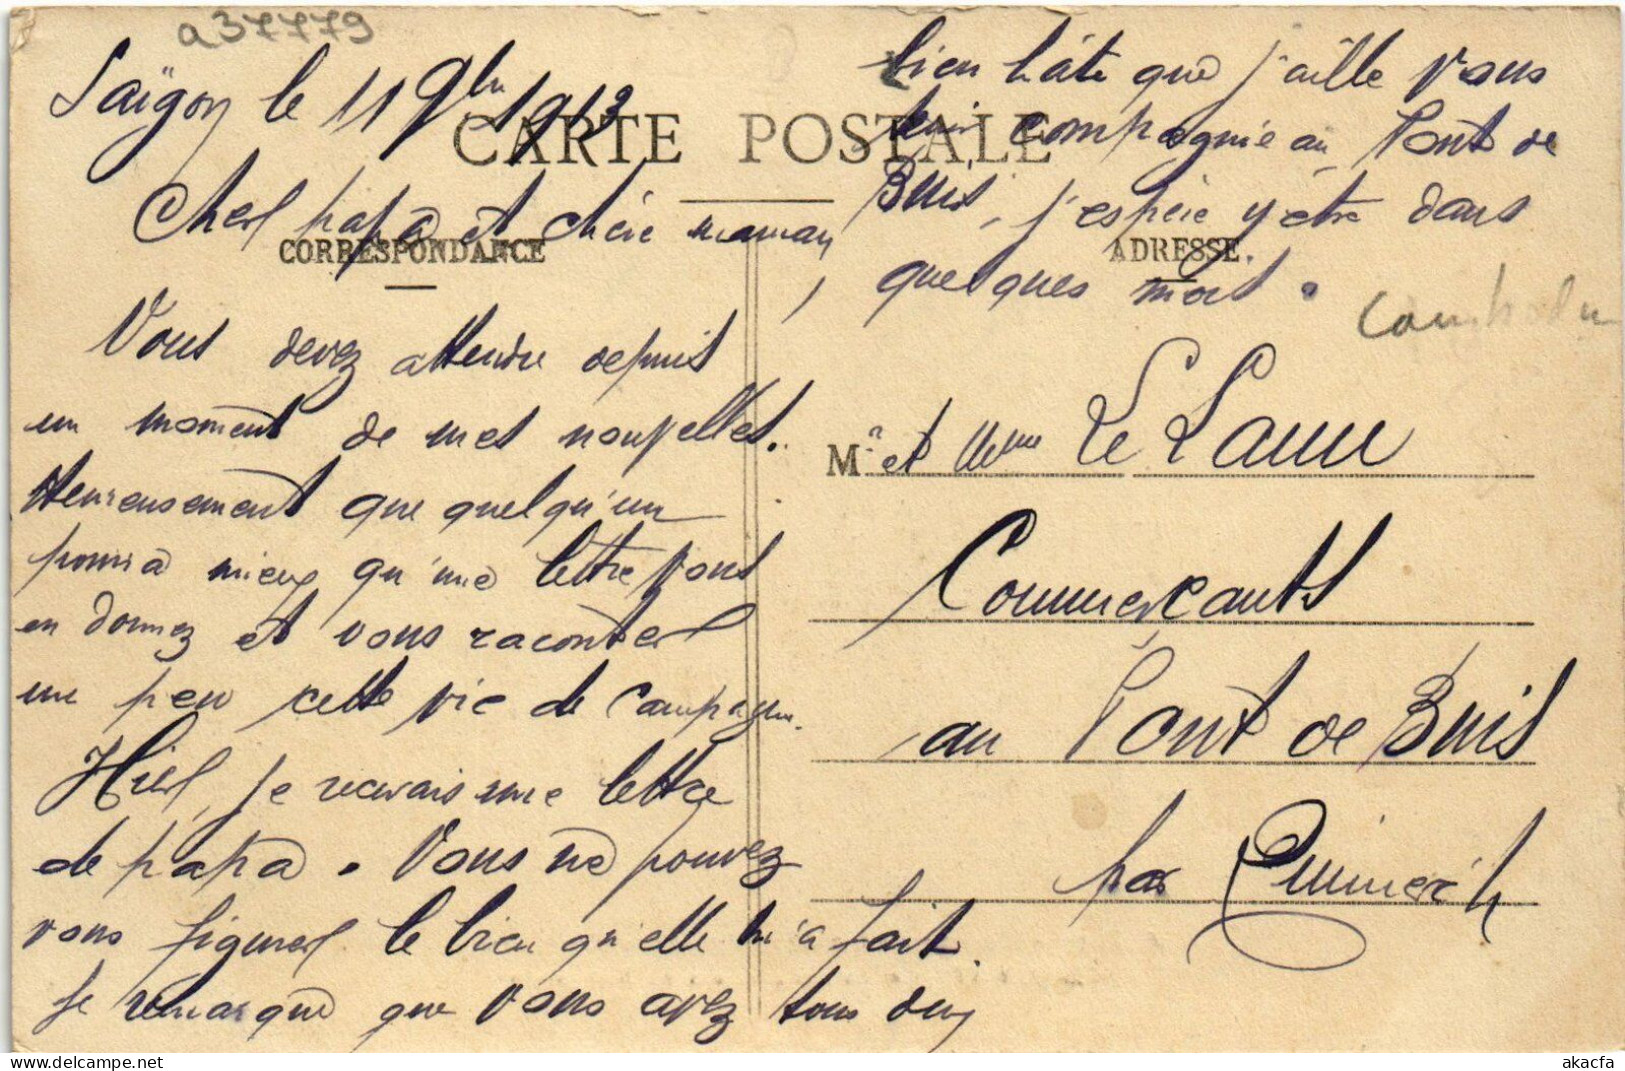 a37779
Saïgon le 11 9bre 1913
CARTE POSTALE
CORRESPONDANCE
ADRESSE.
Cher papa et chère maman,
Vous devez attendre depuis
un moment de mes nouvelles.
Heureusement que quelqu'un
pourra mieux qu'une lettre vous
en donnez et vous raconter
un peu cette vie de Campagne.
Hier, je recevais une lettre
de papa. Vous ne pouvez
vous figurer le bien qu'elle m'a fait.
Je remarque que vous avez tous deux
bien hâte que j'aille vous
tenir compagnie au Pont de
Buis, j'espère y être dans
quelques mois.
Cambodia
Mr et Mme Le
Commerçants
au Pont de Buis
par Quimerc'h
akacfa